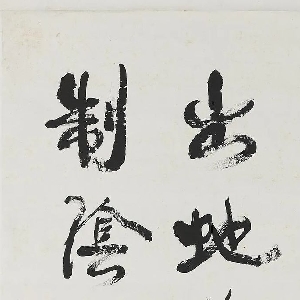 出地
制陰